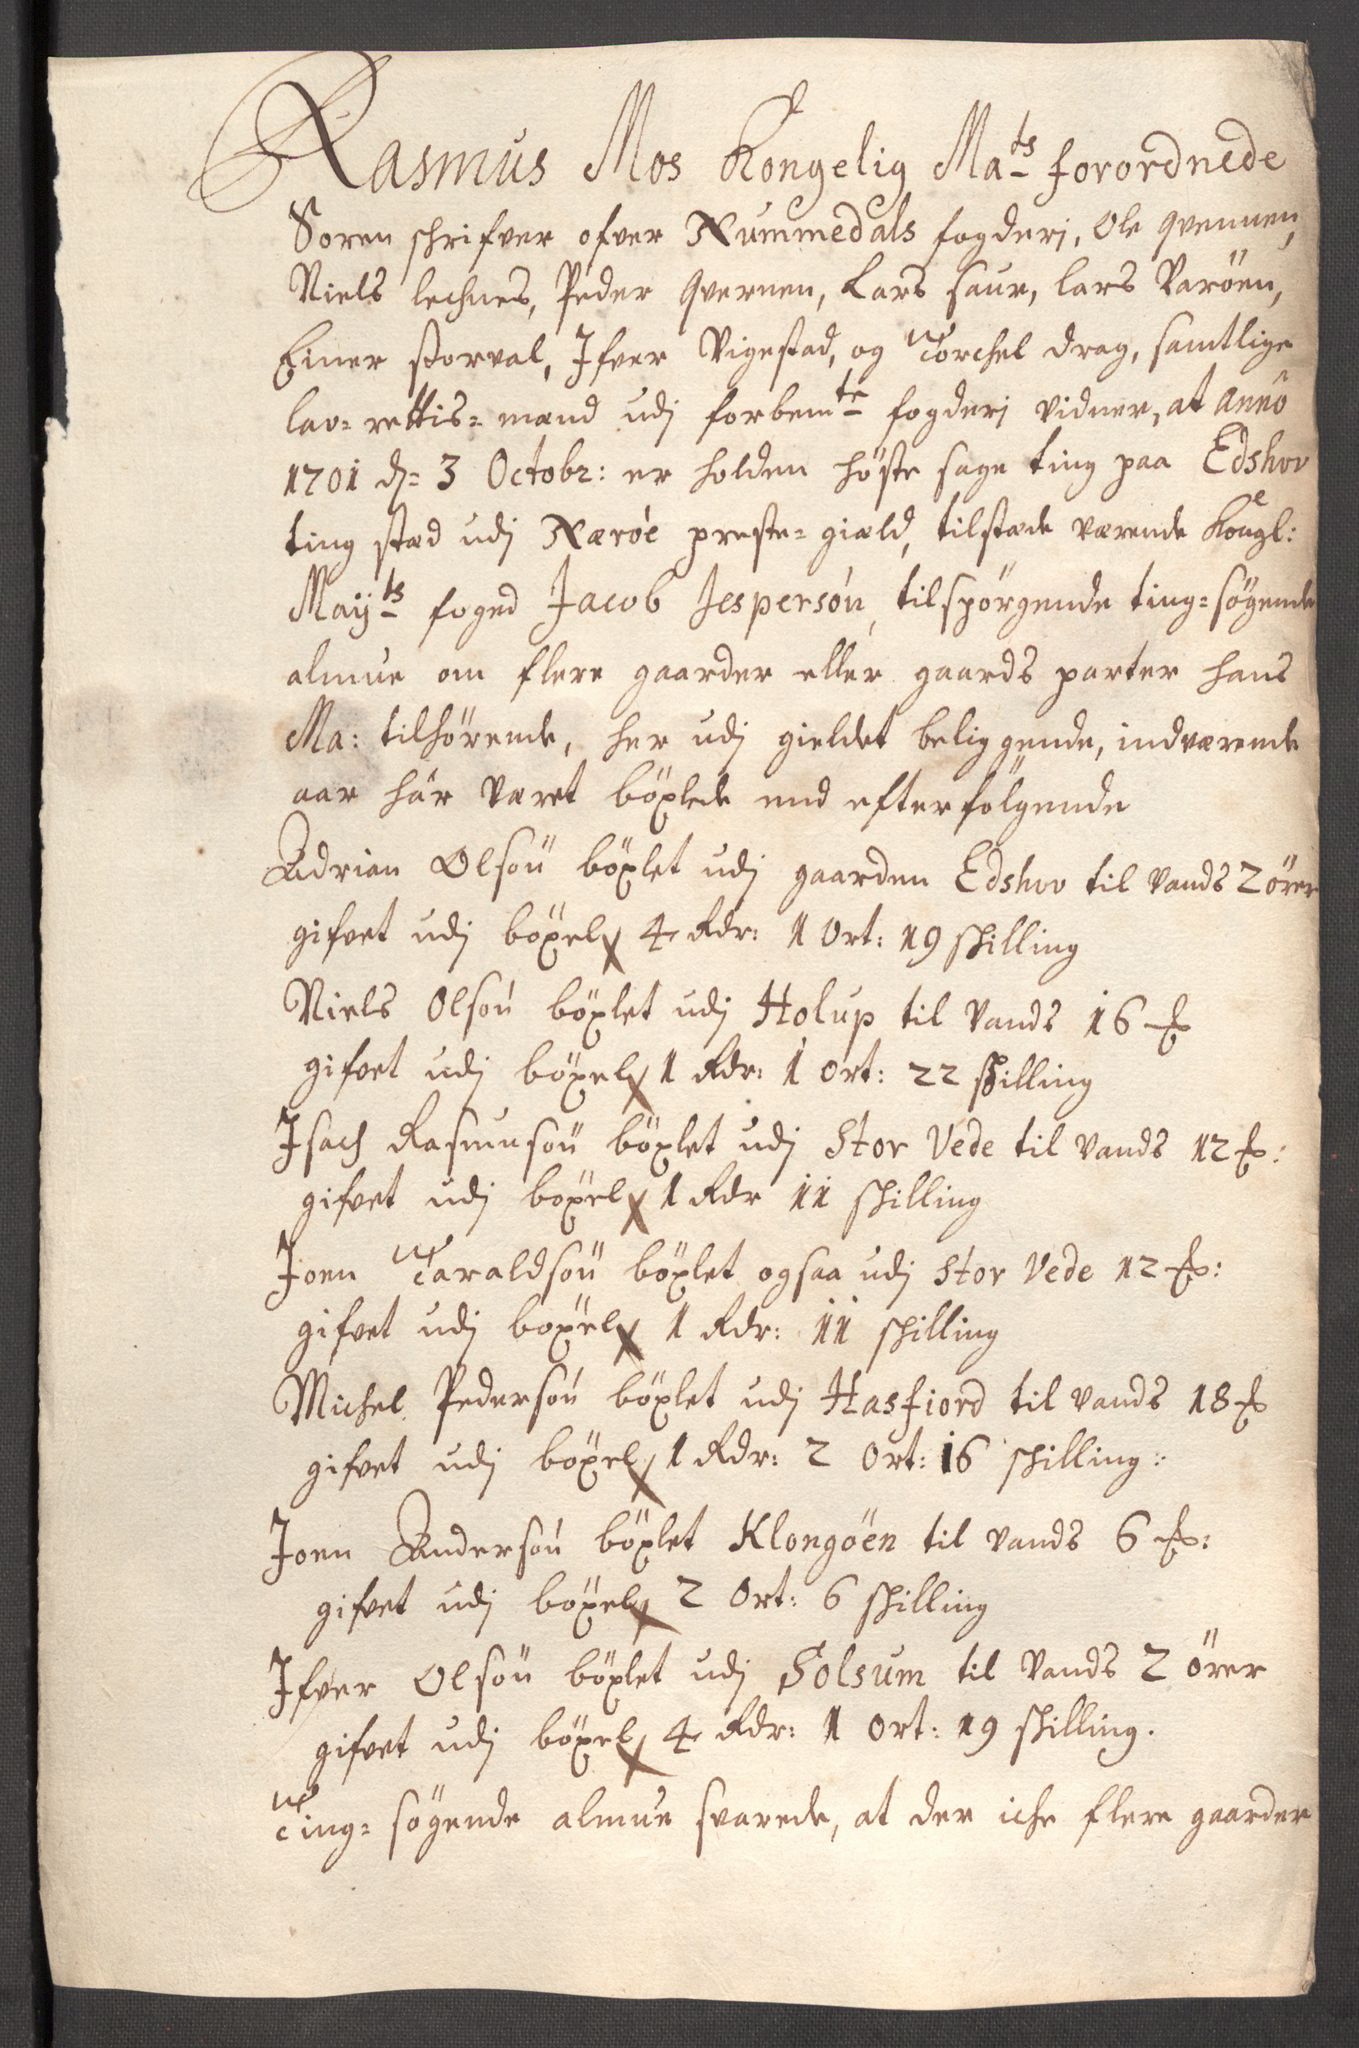 Rasmus Mos Kongelig Ma:ts forordnede
Soren schrifver ofver Nummedals fogderj, Ole qvennen,
Niels lechnes, Peder qvernen, Lars saur, lars Varöen,
Einer storval, Ifver Vigestad, og Torchel drag, samtlige
lav-rettis-mænd udj forbemte fogderj vidner, at Anno
1701 d: 3 Octobr: er holden höste sage ting paa Edshov
ting stæd udj Nærøe preste-giæld, tilstæde værende Kongl:
Mayts foged Jacob Jespersön, tilspörgende ting-sögende
almue om flere gaarder eller gaards parter hans
Ma: tilhörende, her udj gieldet beliggende, indværende
aar här været böxlede end efterfölgende
Adrian Olsön böxlet udj gaarden Edshov til vands 2 örer
gifvet udj böxel 4 Rdr: 1 Ort: 19 shilling
Niels Olsön böxlet udj Holup til vands 16 #
gifvet udj böxel 1 Rdr: 1 Ort: 22 shilling
Isach Rasmusön böxlet udj Stor Vede til vands 12 #:
gifvet udj böxel 1 Rdr 11 shilling
Joen Taraldsön böxlet ogsaa udj Stor Vede 12 #:
gifvet udj böxel 1 Rdr: 11 shilling
Michel Pedersön böxlet udj Hasfiord til vands 18 #
gifvet udj böxel 1 Rdr: 2 Ort: 16 shilling:
Joen Andersön böxlet Klongöen til vands 6 #:
gifvet udj böxel 2 Ort: 6 shilling
Ifver Olsön böxlet udj Solsum til vands 2 örer
gifvet udj böxel 4 Rdr: 1 Ort: 19 shilling.
Ting-sögende almue svarede, at der iche flere gaarder